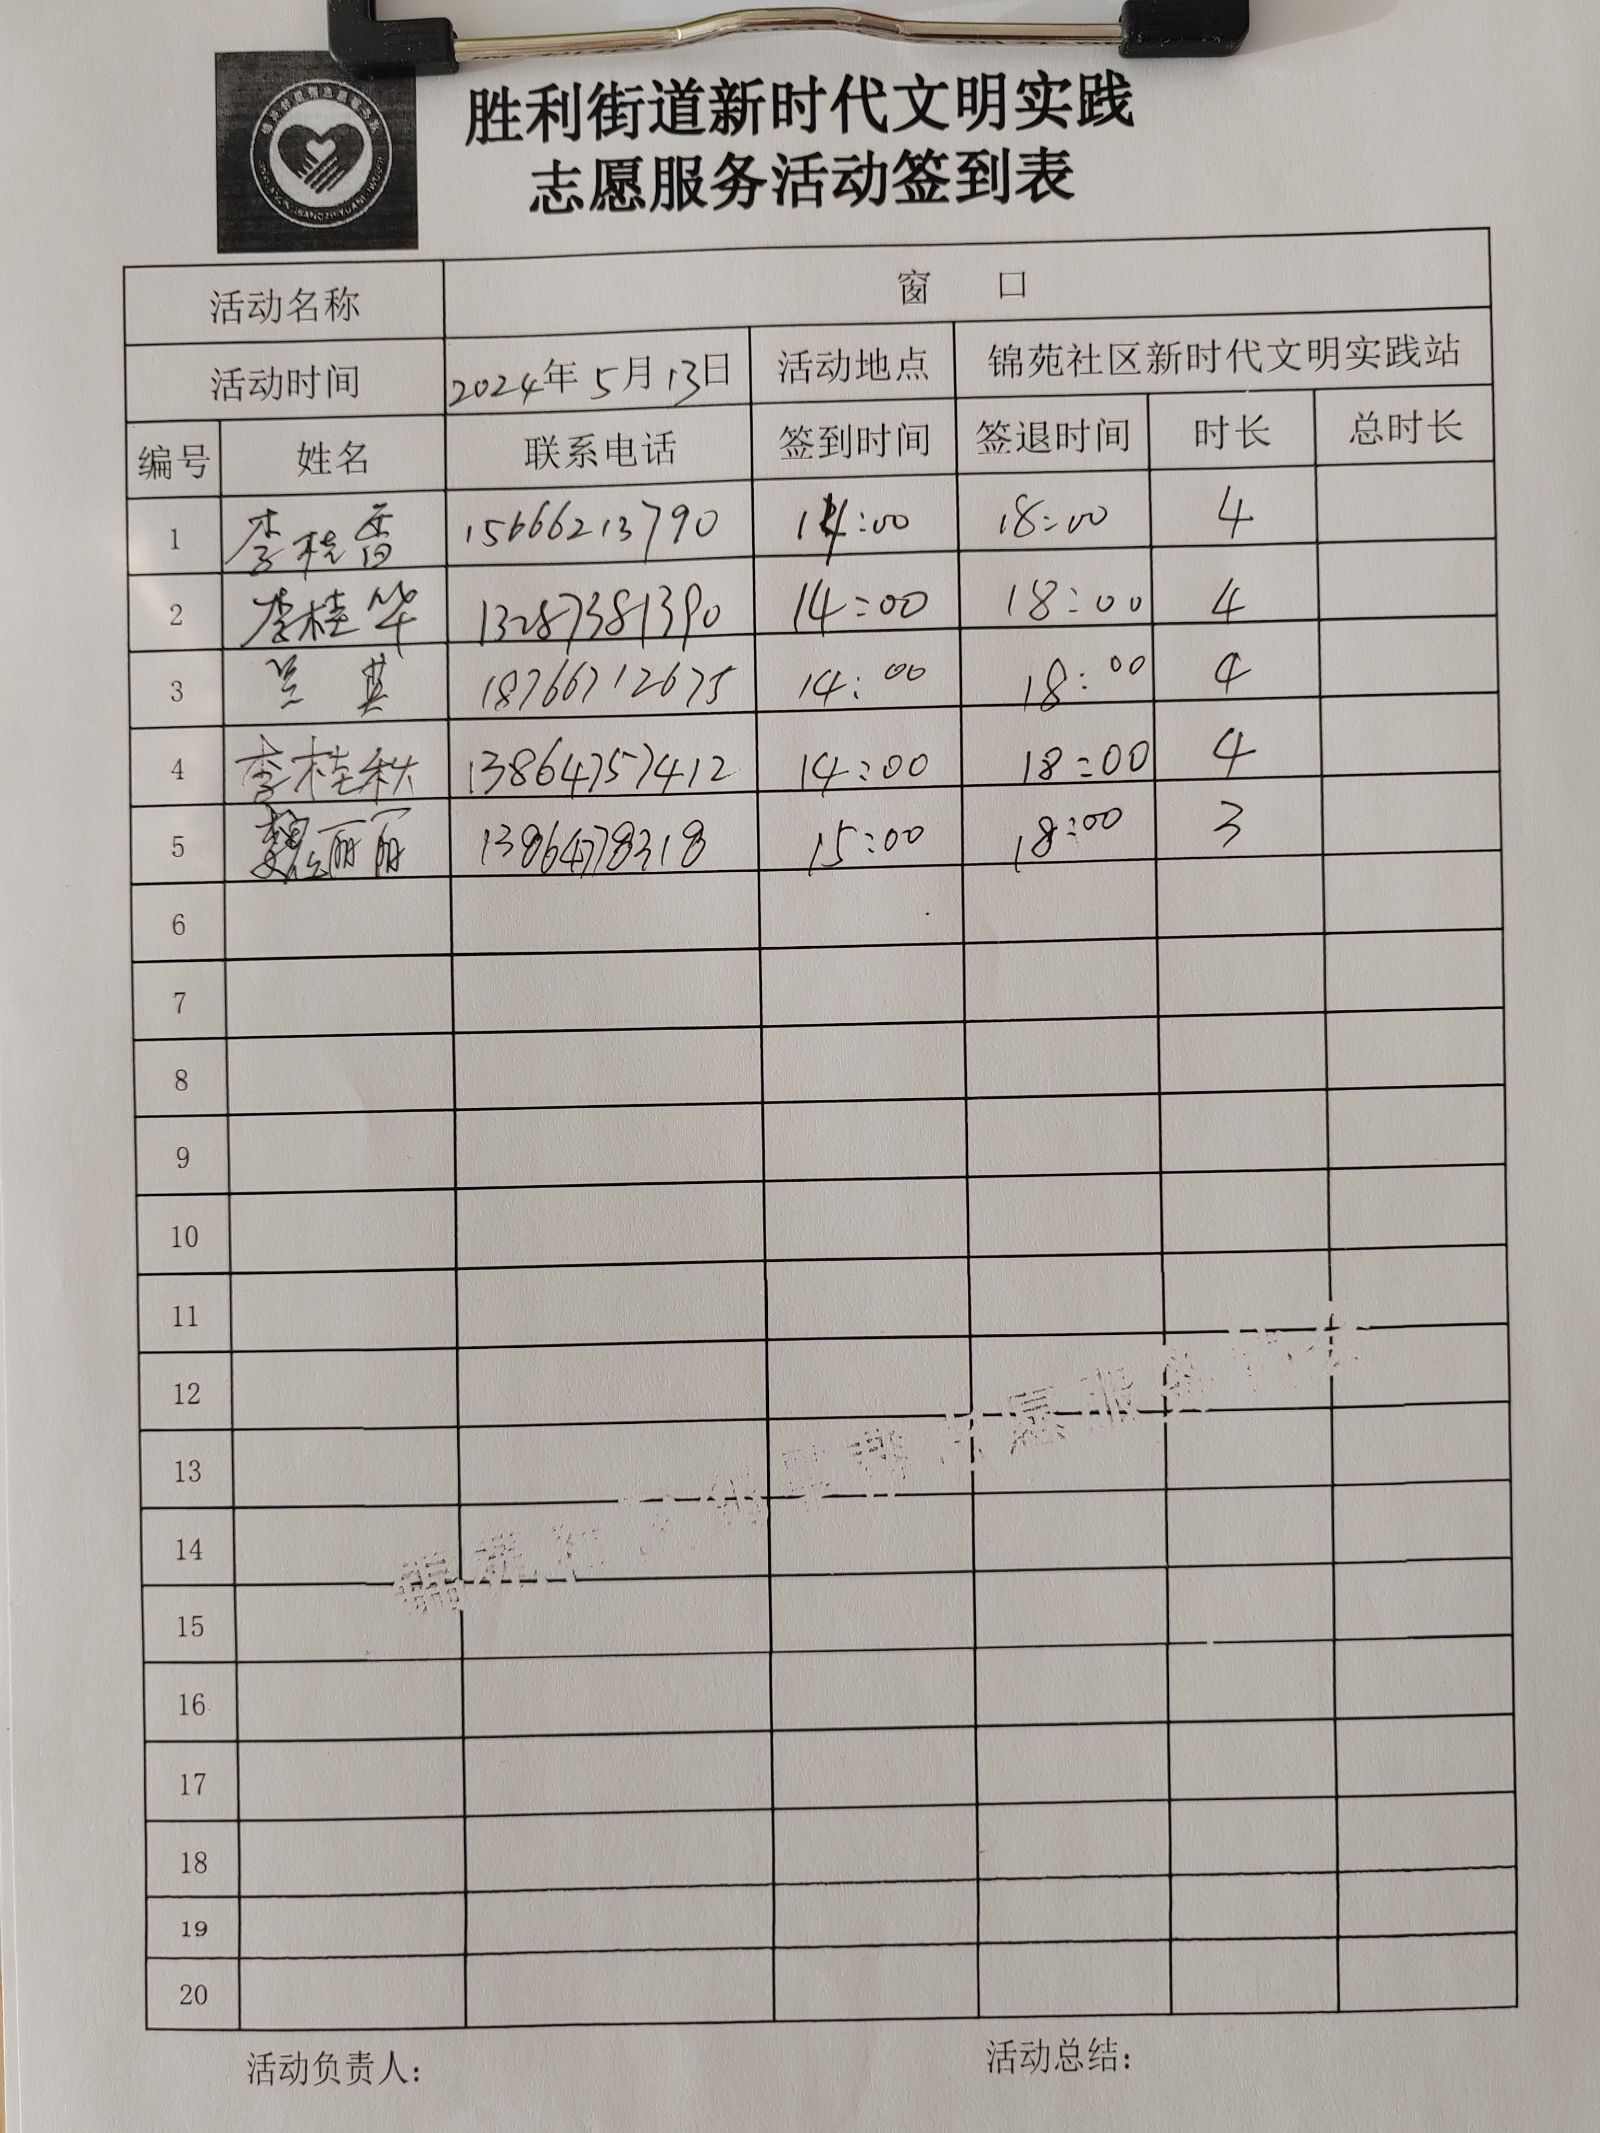 胜利街道新时代文明实践
志愿服务活动签到表
活动名称 窗 口
活动时间 2024年5月13日 活动地点 锦苑社区新时代文明实践站
编号 姓名 联系电话 签到时间 签退时间 时长 总时长
1 李桂香 15666213790 14:00 18:00 4
2 李桂华 13287381390 14:00 18:00 4
3 兰其 18766712675 14:00 18:00 4
4 李桂秋 13864757412 14:00 18:00 4
5 魏丽丽 13864778318 15:00 18:00 3
6
7
8
9
10
11
12
13
14
15
16
17
18
19
20
活动负责人： 活动总结：